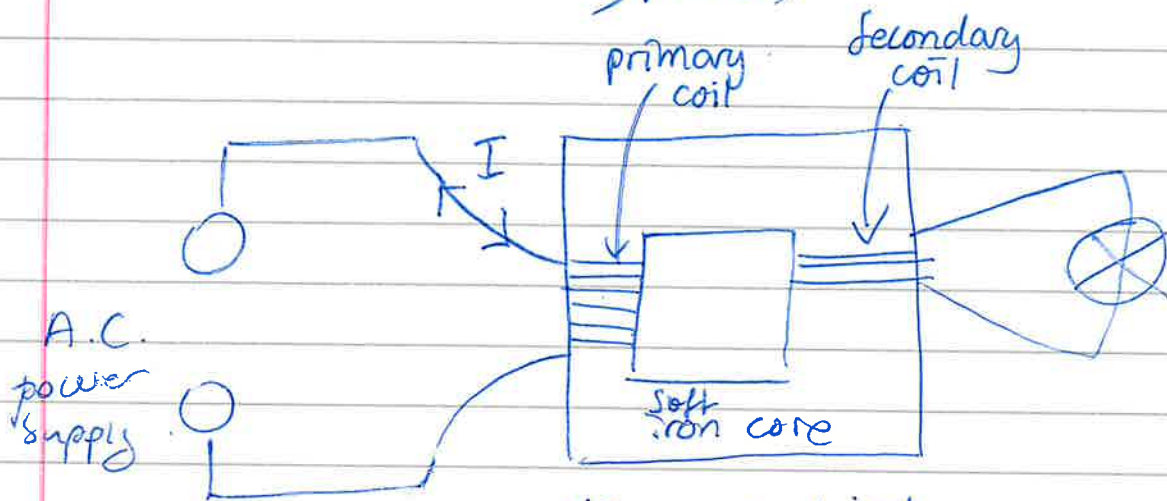 primary
coil
Secondary
coil
I
A.C.
power
supply
soft
iron core